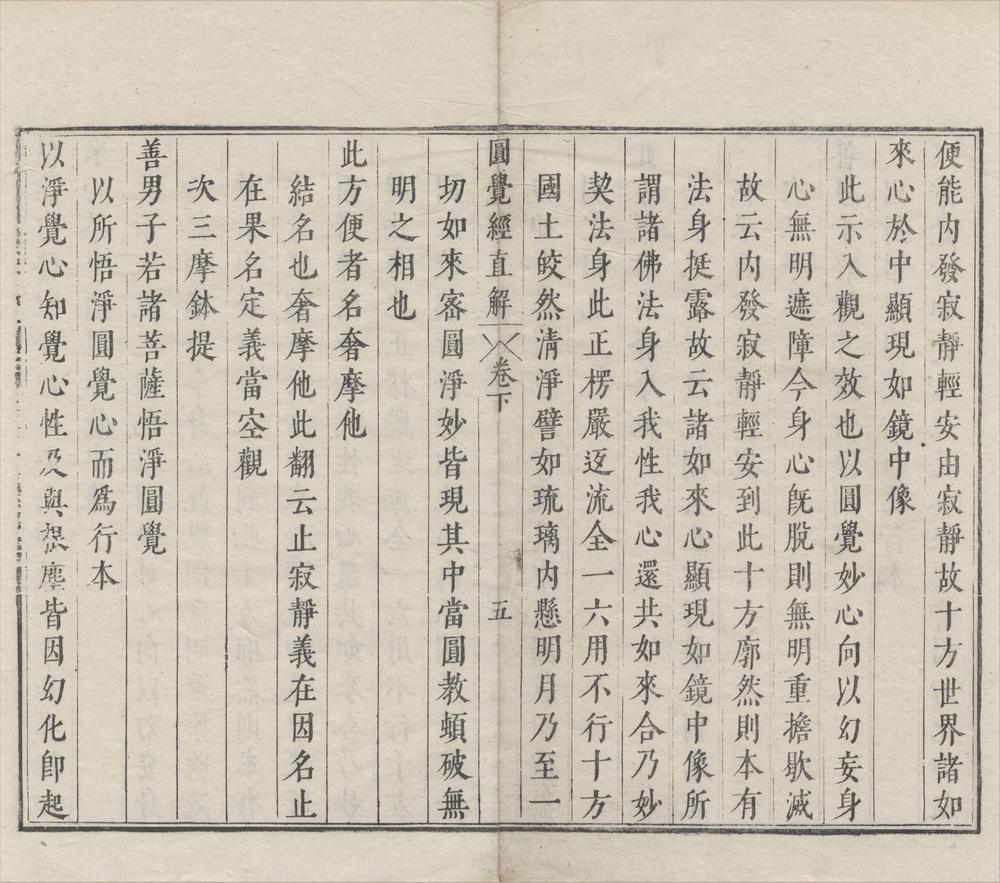 便能內發寂靜輕安由寂靜故十方世界諸如
來心於中顯現如鏡中像
此示入觀之效也以圓覺妙心向以幻妄身
心無明遮障今身心旣脫則無明重擔歇滅
故云內發寂靜輕安到此十方廓然則本有
法身挺露故云諸如來心顯現如鏡中像所
謂諸佛法身入我性我心還共如來合乃妙
契法身此正楞嚴返流全一六用不行十方
國土皎然淸淨譬如琉璃內懸明月乃至一
圓覺經直解 卷下 五
切如來密圓淨妙皆現其中當圓教頓破無
明之相也
此方便者名奢摩他
結名也奢摩他此翻云止寂靜義在因名止
在果名定義當空觀
次三摩鉢提
善男子若諸菩薩悟淨圓覺
以所悟淨圓覺心而爲行本
以淨覺心知覺心性及與根塵皆因幻化卽起